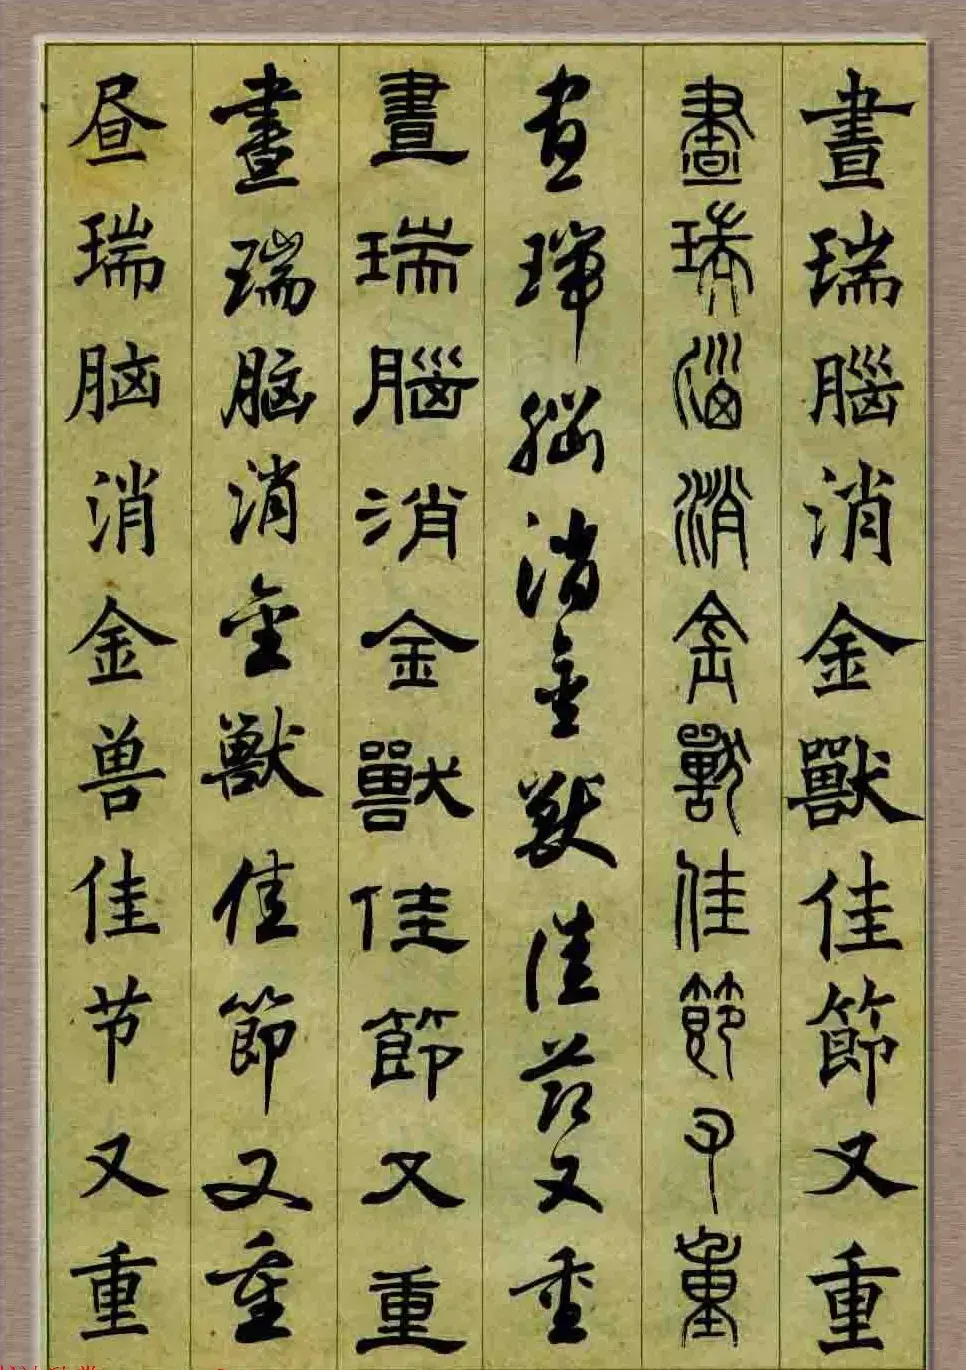 晝瑞腦消金獸佳節又重
晝瑞腦消金獸佳節又重
晝瑞腦消金獸佳節又重
晝瑞腦消金獸佳節又重
晝瑞脑消金獸佳節又重
昼瑞脑消金兽佳节又重